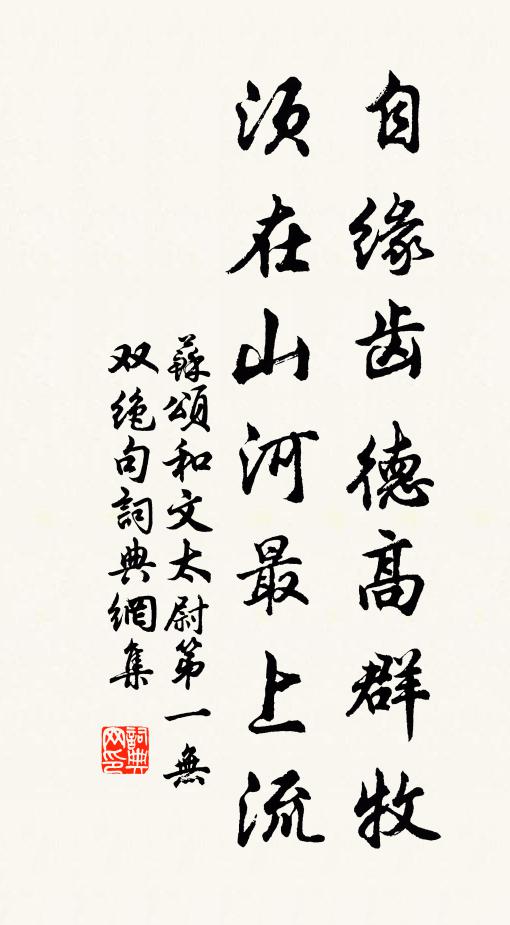 自缘齿德高群牧
须在山河最上流
蘇頌和文太尉第一無
双绝句詞典網集
詞典网印